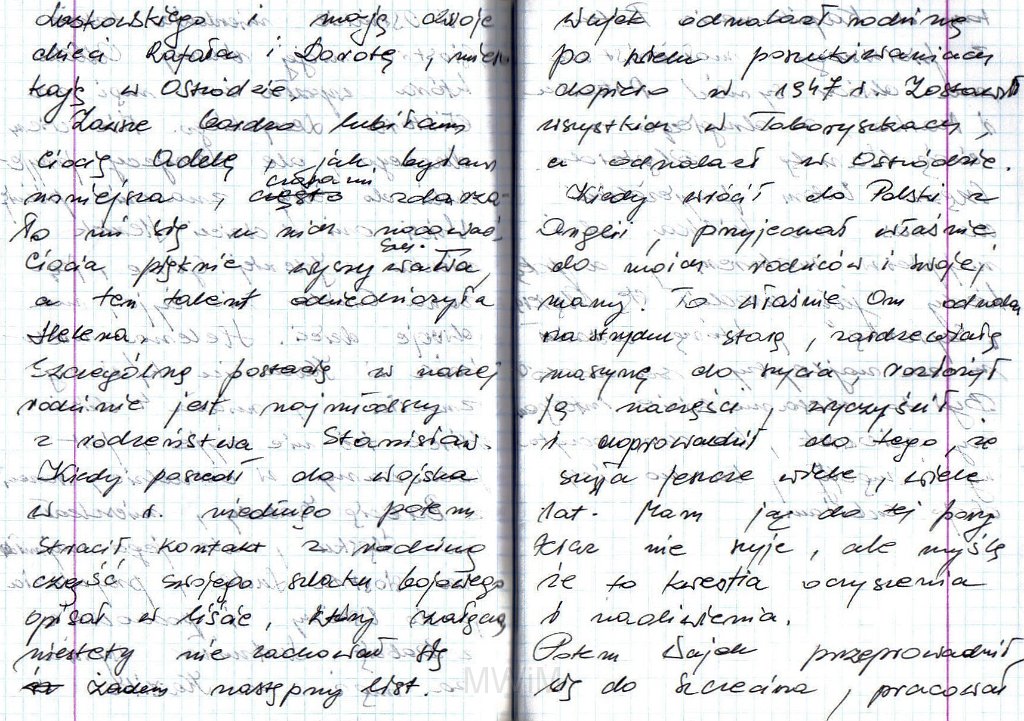 laskowskiego i mają dwoje
dzieci Rafała i Dorotę, miesz
kają w Ostródzie.
Zawsze bardzo lubiłam
Ciocię Adelę, jak byłam
mniejsza, często czasami zdarza-
ło mi się u nich nocować.
Ciocia pięknie wyszywała,
a ten talent odziedziczyła
Helena.
Szczególną postacią w naszej
rodzinie jest najmłodszy
z rodzeństwa Stanisław.
Kiedy poszedł do wojska
w r. niedługo potem
stracił kontakt z rodziną
część swojego szlaku bojowego
opisał w liście, który
niestety nie zachował się
żaden następny list.
Wujek odnalazł rodzinę
po wielu poszukiwaniach
dopiero w 1947 r. Zostawił
wszystkich w Taboryszkach,
a odnalazł w Ostródzie.
Kiedy wrócił do Polski z
Anglii, przyjechał właśnie
do moich rodziców i swojej
mamy. To właśnie On odnalazł
na strychu starą, zardzewiałą
maszynę do szycia, rozłożył
ją na części, wyczyścił
i doprowadził do tego, że
szyła jeszcze wiele, wiele
lat. Mam ją do tej pory
teraz nie szyje, ale myślę
że to kwestia oczyszczenia
i naoliwienia.
Potem Wujek przeprowadził
się do Szczecina, pracował
MWiM